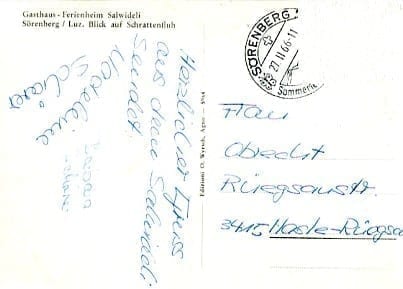 Gasthaus - Ferienheim Salwideli
Sörenberg / Luz. Blick auf Schrattenfluh
Herzlicher Gruss
aus dem Salwideli
sendet
Editions O. Wyrsch, Agno - 5764
SÖRENBERG
27 11 66-11
Sommerfe
Frau
Obrecht
Rüegsaustr.
3415 Hasle-Rüegsau